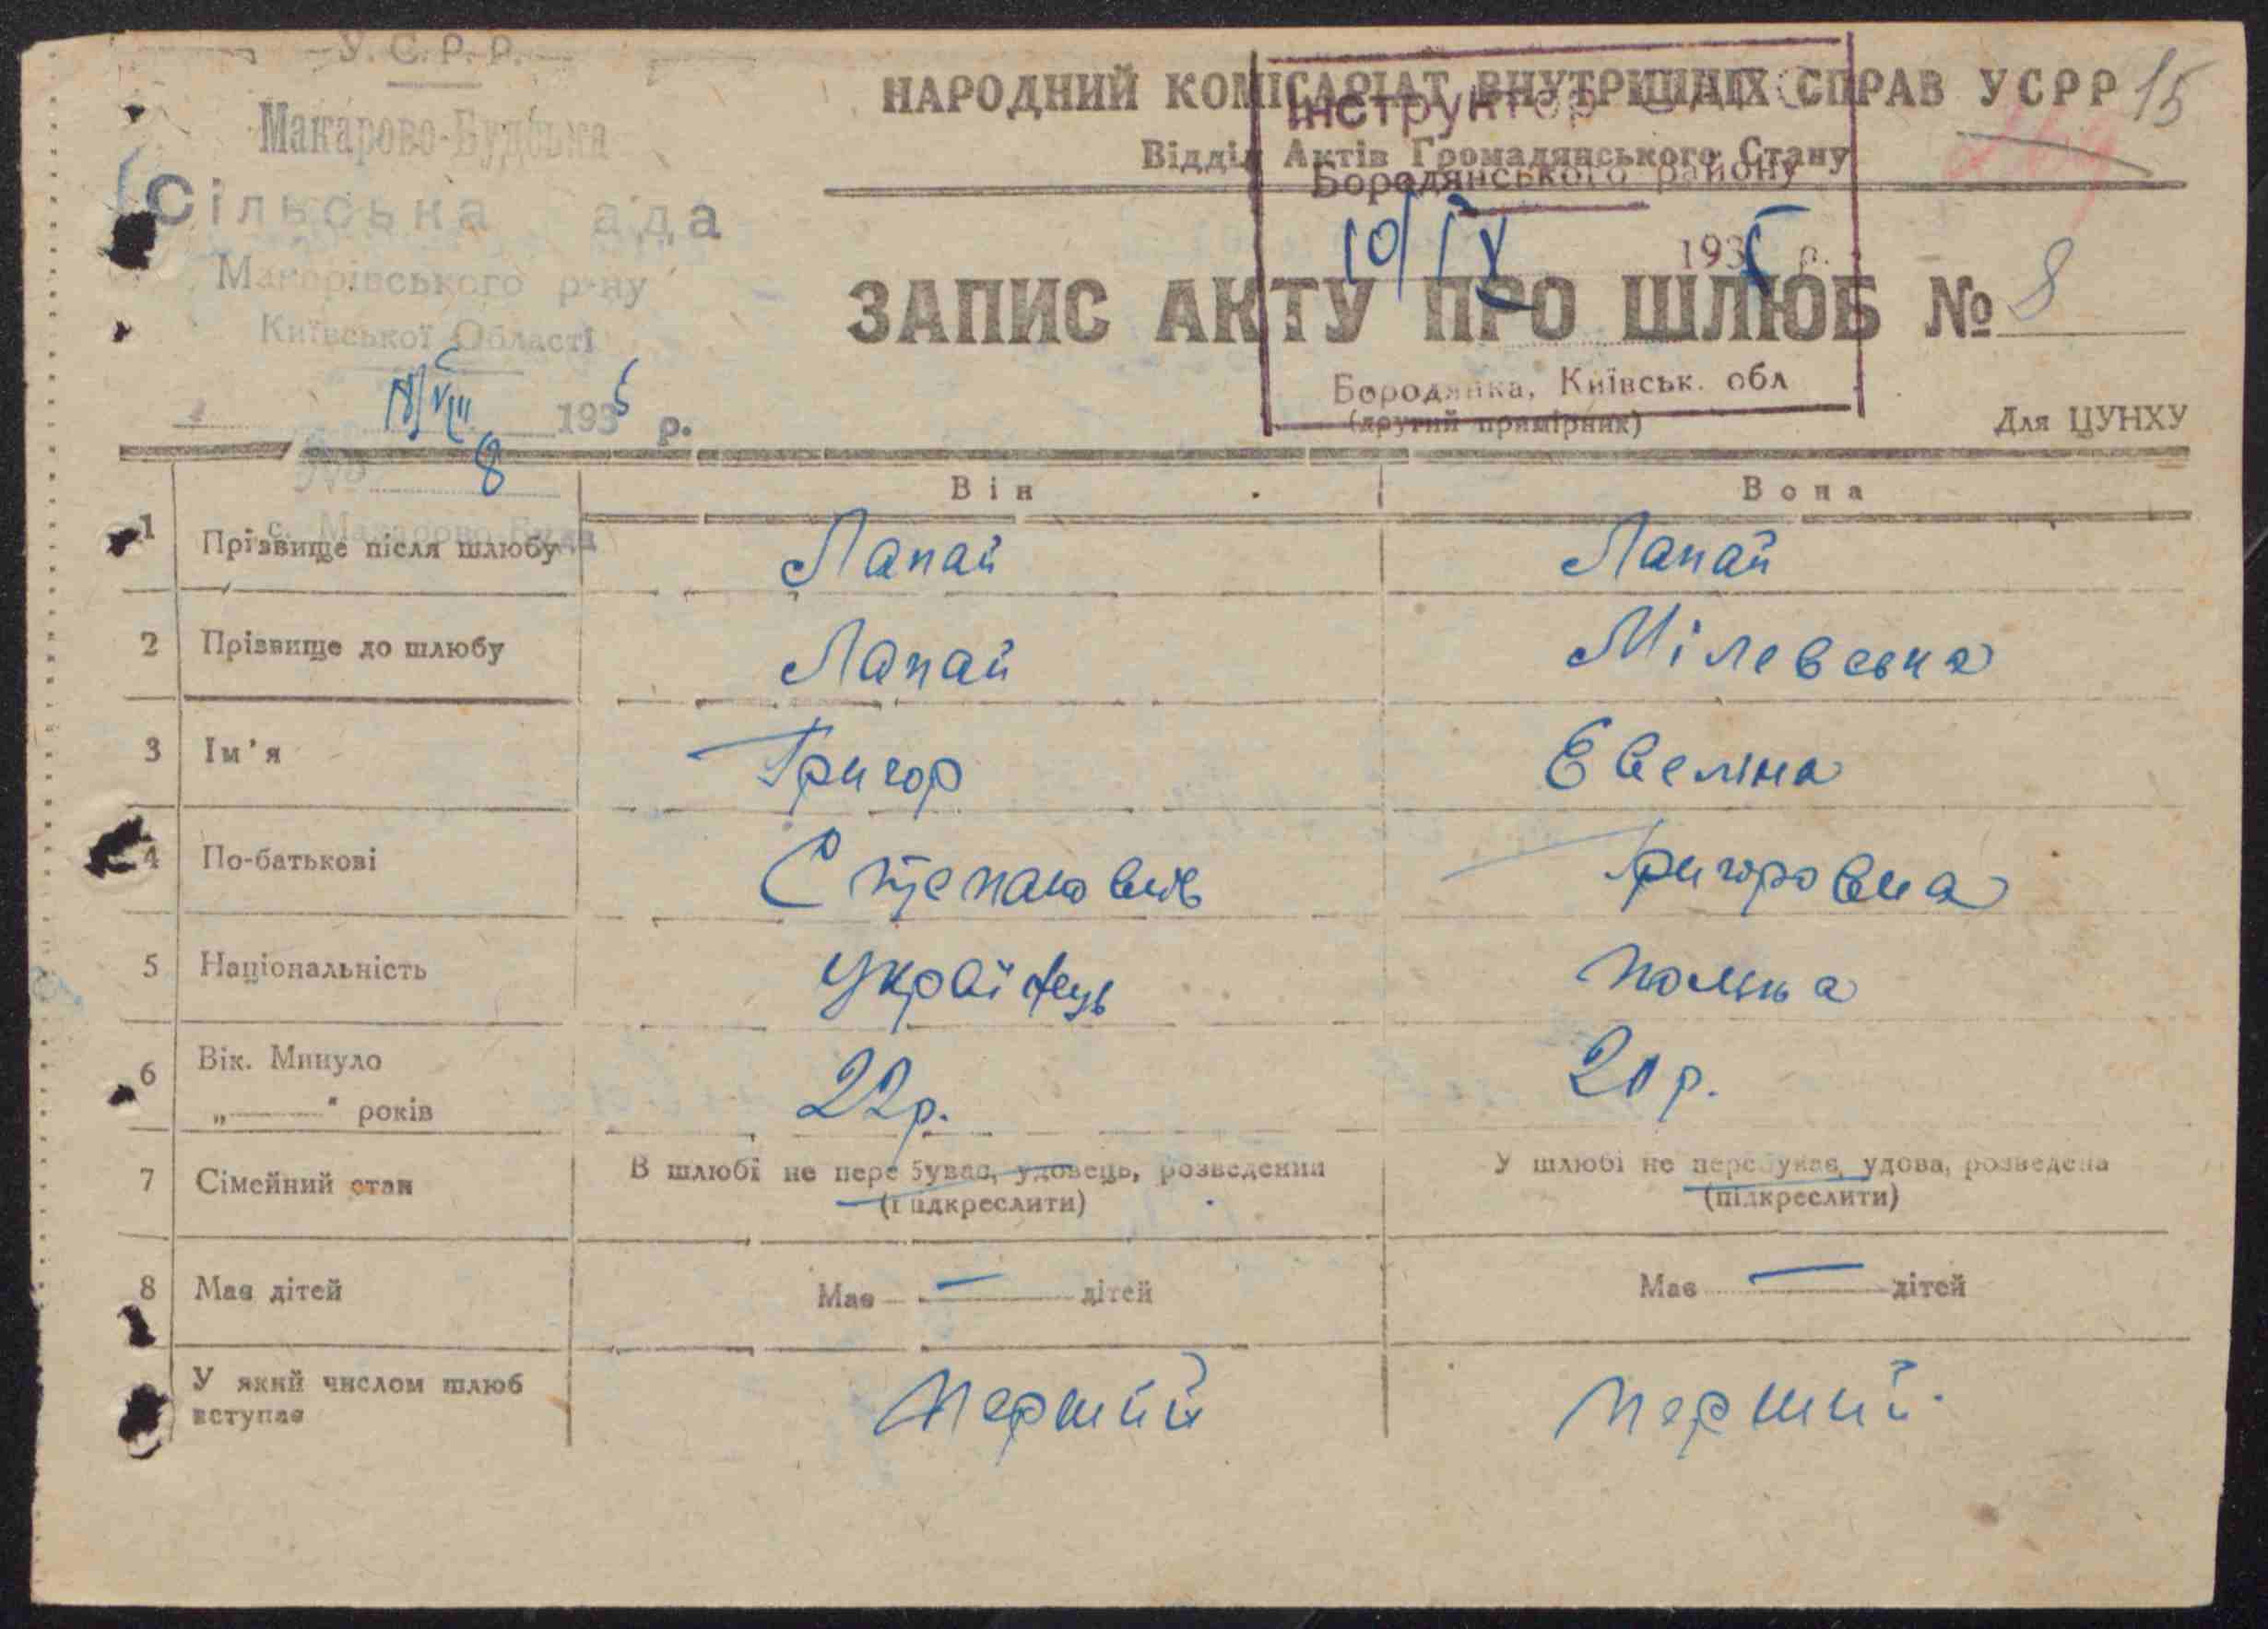 У.С.Р.Р.
Макарово-Будська
Сільська ада
Макарівського р-ну
Київської Області
VIII 1935 р.
8
с. Макарово-Буда
НАРОДНИЙ КОМІСАРІАТ ВНУТРІШНІХ СПРАВ УСРР
15
Відділ Актів Громадянського Стану
Інструктор
Бородянського району
10/IX 1935 р.
Бородянка, Київськ. обл
ЗАПИС АКТУ ПРО ШЛЮБ № 8
(другий примірник)
Для ЦУНХУ
Він Вона
1 Прізвище після шлюбу Лапай Лапай
2 Прізвище до шлюбу Лапай Мілевська
3 Ім'я Григор Евеліна
4 По-батькові Степанович Григоровна
5 Національність Українець полька
6 Вік. Минуло „——" років 22р. 20 р.
7 Сімейний стан В шлюбі не перебував, удовець, розведений У шлюбі не перебував, удова, розведена
(підкреслити) (підкреслити)
8 Має дітей Має — дітей Має — дітей
У який числом шлюб вступає перший перший